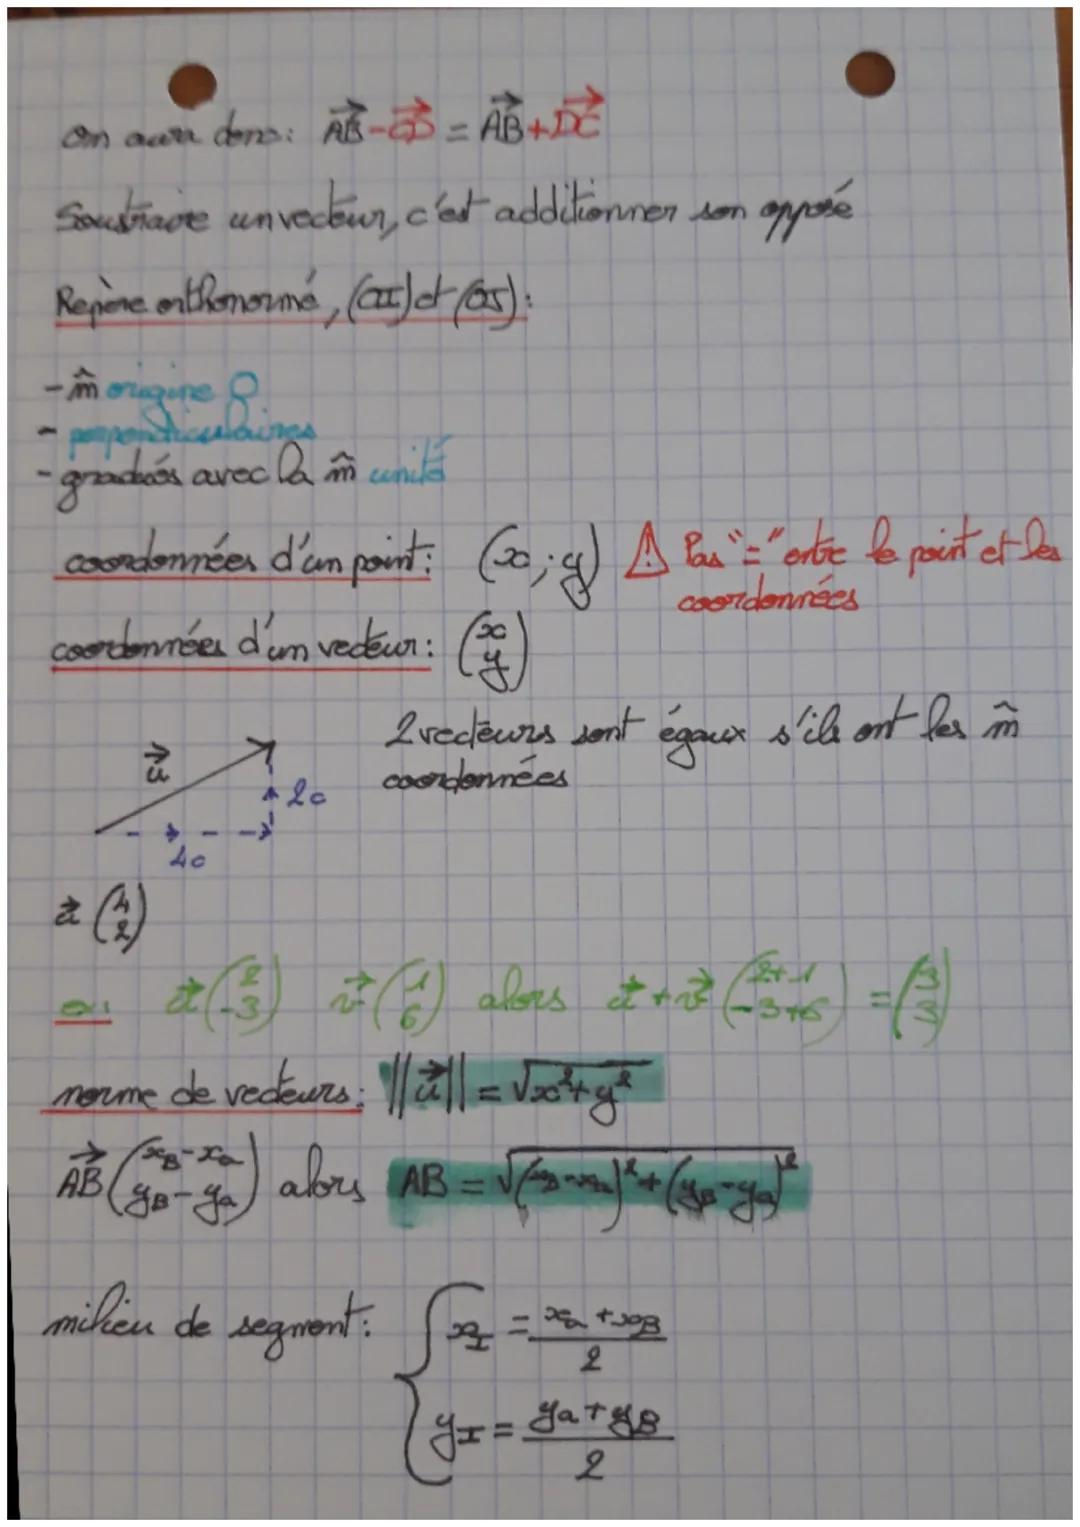 on aura donc: AB⃗ - CD⃗ = AB⃗ + DC⃗
Soustraire un vecteur, c'est additionner son opposé
Repère orthonormé, (OI) et (OJ):
- m̂ origine O
- perpendiculaires
- gradués avec la m̂ unité
coordonnées d'un point: (x ; y) ⚠ Pas "=" entre le point et les
coordonnées
coordonnées d'un vecteur: (x
y)
2 vecteurs sont égaux s'ils ont les m̂
coordonnées
u⃗
2c
4c
u⃗ (4
2)
ex: u⃗ (2
-3) v⃗ (1
6) alors u⃗ + v⃗ (2+1
-3+6) = (3
3)
norme de vecteurs: ||u⃗|| = √x²+y²
AB⃗ (xB - xa
yB - ya) alors AB = √(xB-xa)² + (yB-ya)²
milieu de segment: { xI = xa + xB
2
yI = ya + yB
2